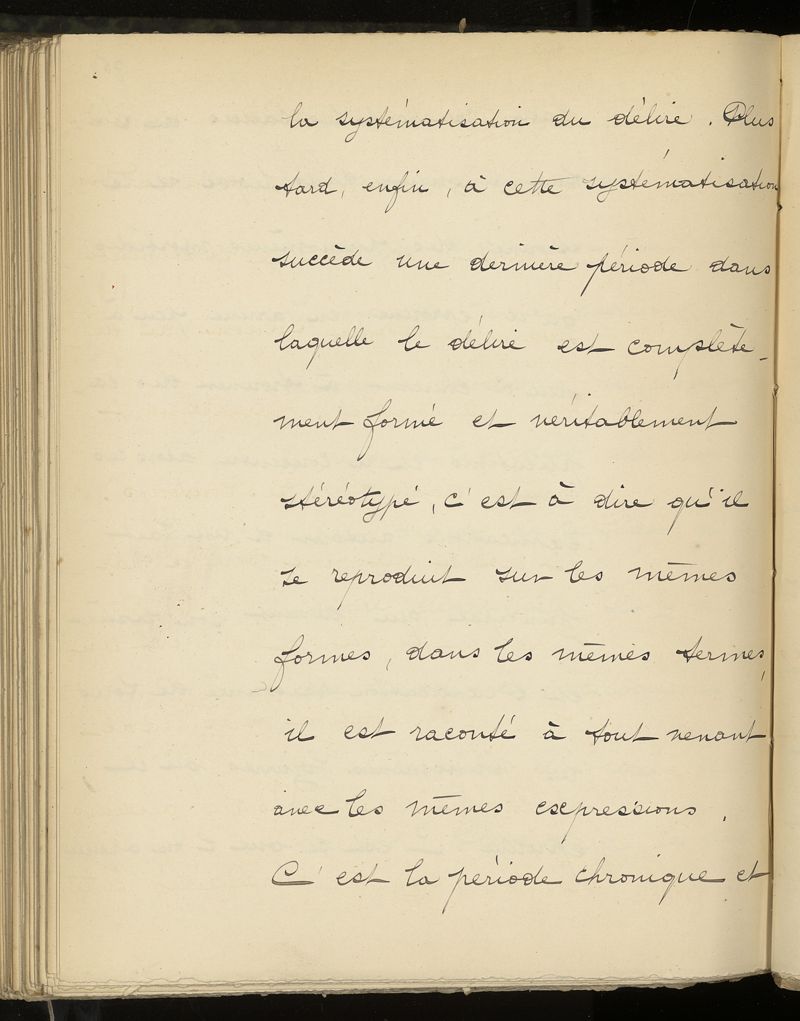 la systématisation du délire. Plus
tard, enfin, à cette systématisation
succède une dernière période dans
laquelle le délire est complète-
ment formé et véritablement
stéréotypé, c'est à dire qu'il
se reproduit sur les mêmes
formes, dans les mêmes termes,
il est raconté à tout venant
avec les mêmes expressions.
C'est la période chronique et